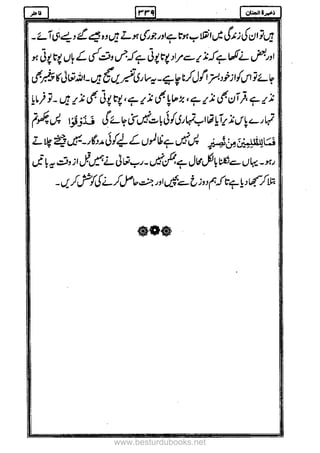 ذخیرۃ الجنان ۳۳۹ فاطر
ہیں تو ان کی زندگی میں انقلاب ہوتا ہے اور جو ریجھے ہوتے ہیں وہ جیسے گئے ویسے ہی آئے۔
اور بعض نے لکھا ہے کہ نذیر سے مراد پوتا پوتی ہے کہ جس وقت کسی کے ہاں پوتا پوتی ہو
جائے تو اس کو از خود بستر اگول کرنا چاہیے۔ یہ ساری تفسیریں صحیح ہیں۔ اللہ تعالیٰ کا پیغمبر بھی
نذیر ہے، قرآن بھی نذیر ہے، بڑھاپا بھی نذیر ہے، پوتا، پوتی بھی نذیر ہیں۔ تو فرمایا
تمہارے پاس نذیر آیا تھا اب تمہاری کوئی بات نہیں سنی جائے گی فَذُوْقُوْا پس تم چکھو
فَمَا لِلظّٰلِمِيْنَ مِنْ نَّصِيْرٍ پس نہیں ہے ظالموں کے لیے کوئی مددگار۔ یہیں چیختے چلاتے
رہو۔ یہاں سے نکلنا بالکل محال ہے ممکن نہیں۔ رب تعالیٰ نے ہمیں قبل از وقت یہ باتیں
بتلا کر سمجھا دیا ہے تاکہ ہم دوزخ سے بچیں اور جنت حاصل کرنے کی کوشش کریں۔
www.besturdubooks.net